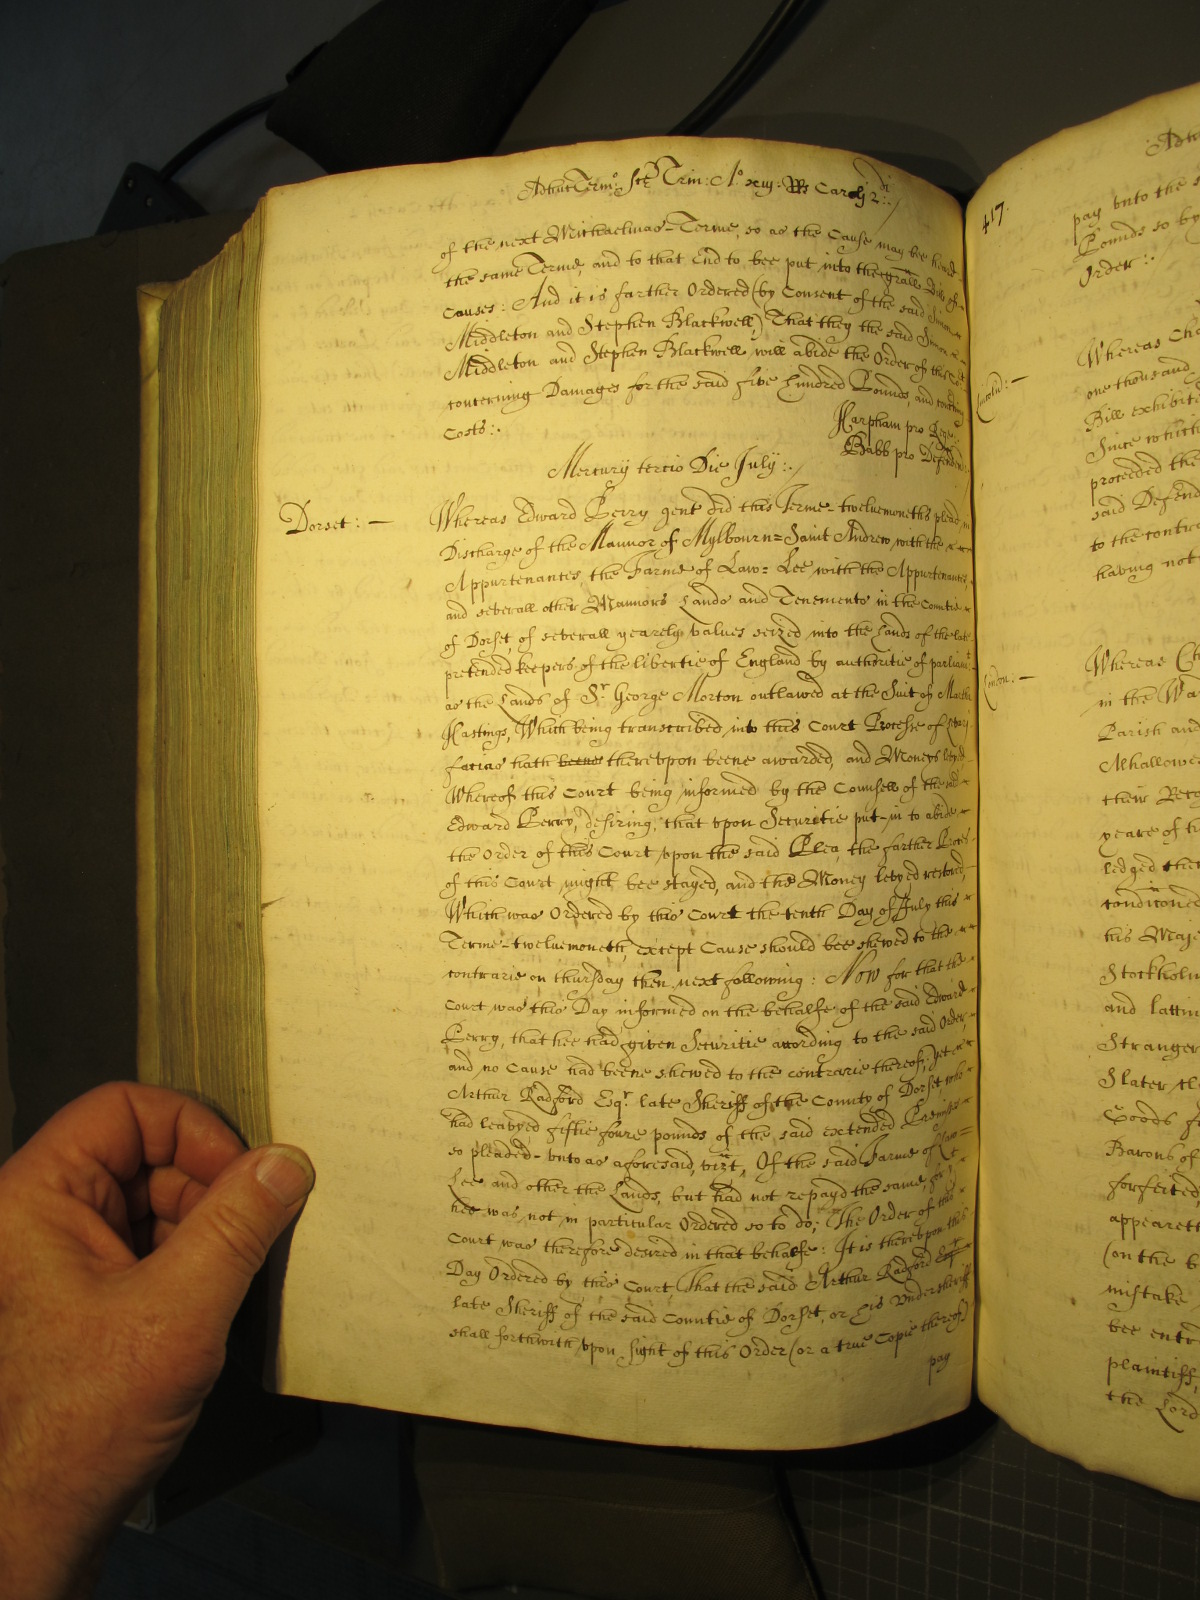 Adhuc Termo Scte Trin: Ao xiij: Rs Carolj 2di:
of the next Michaelmas-Terme, so as the Cause may bee heard
the same Terme, and to that End to bee put into the grall Bill of
Causes: And it is farther Ordered (by Consent of the said Simon
Middleton and Stephen Blackwell,) That they the said Simon
Middleton and Stephen Blackwell will abide the Order of this
concerning Damages for the said five hundred Pounds, and
Costs:.
Harpham pro Rege:
Babb pro Defend:
Mercurij tercio Die Julij:.
Dorset: —
Whereas Edward Perry gent did this Terme-twelvemoneths plead in
Discharge of the Mannor of Mylbourn=Saint Andrew, with the
Appurtenances, the Farme of Law=Lee with the Appurtenances,
and severall other Mannors Lands and Tenements in the Countie
of Dorset, of severall yearely values seized into the hands of the late
pretended keepers of the libertie of England by authoritie of parliamt:
as the Lands of Sr George Morton outlawed at the Suit of Martha
Hastings, Which being transcribed into this Court Processe of Levari
facias hath beene thereupon beene awarded, and Moneys levyed
Whereof this Court being informed by the Counsell of the said
Edward Perry, desiring, that upon Securitie put-in to abide
the Order of this Court upon the said Plea, the farther Proces
of this Court might bee stayed, and the Money levyed restored,
Which was Ordered by this Court the tenth Day of July this
Terme-twelvemoneth, except Cause should bee shewed to the
contrarie on thursday then next following: Now for that the
Court was this Day informed on the behalfe of the said Edward
Perry, that hee had given Securitie according to the said Order,
and no Cause had beene shewed to the contrarie thereof; yet
Arthur Radford Esqr. late Sheriff of the County of Dorset who
had leavyed fiftie foure pounds of the said extended Premisses
so pleaded-unto as aforesaid, vizt, Of the said Farme of Law=
Lee and other the Lands, but had not repayd the same, for
hee was not in particular Ordered so to do; The Order of this
Court was therefore desired in that behalfe: It is thereupon this
Day Ordered by this Court, That the said Arthur Radford Esqr
late Sheriff of the said Countie of Dorset, or his Undersheriff
shall forthwith upon sight of this Order (or a true Copie thereof)
pay
417.
pay unto the
Pounds so by
Order:.
Lincoln: —
Whereas
one thousand
Bill exhibite
Since which
proceeded the
said Defend
to the contra
having not
London: —
Whereas
in the War
Parish and
Alhallowes
their Reco
yeare of
ledged then
condiconed
his Maje
Stockholm
and lattin
Stranger
Slater
Goods
Barons of
forfeited
appeareth
(on the
mistake
bee entr
plaintiff,
the Lord